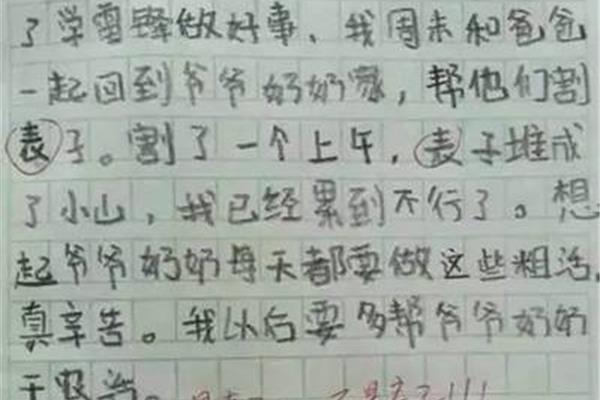 了学雷锋做好事、我周末和爸爸
一起回到爷爷奶奶家，帮他们割
表子。割了一个上午，表子堆成
了小山，我已经累到不行了。想
起爷爷奶奶每天都要做这些粗活，
真辛苦。我以后要多帮爷爷奶奶
干